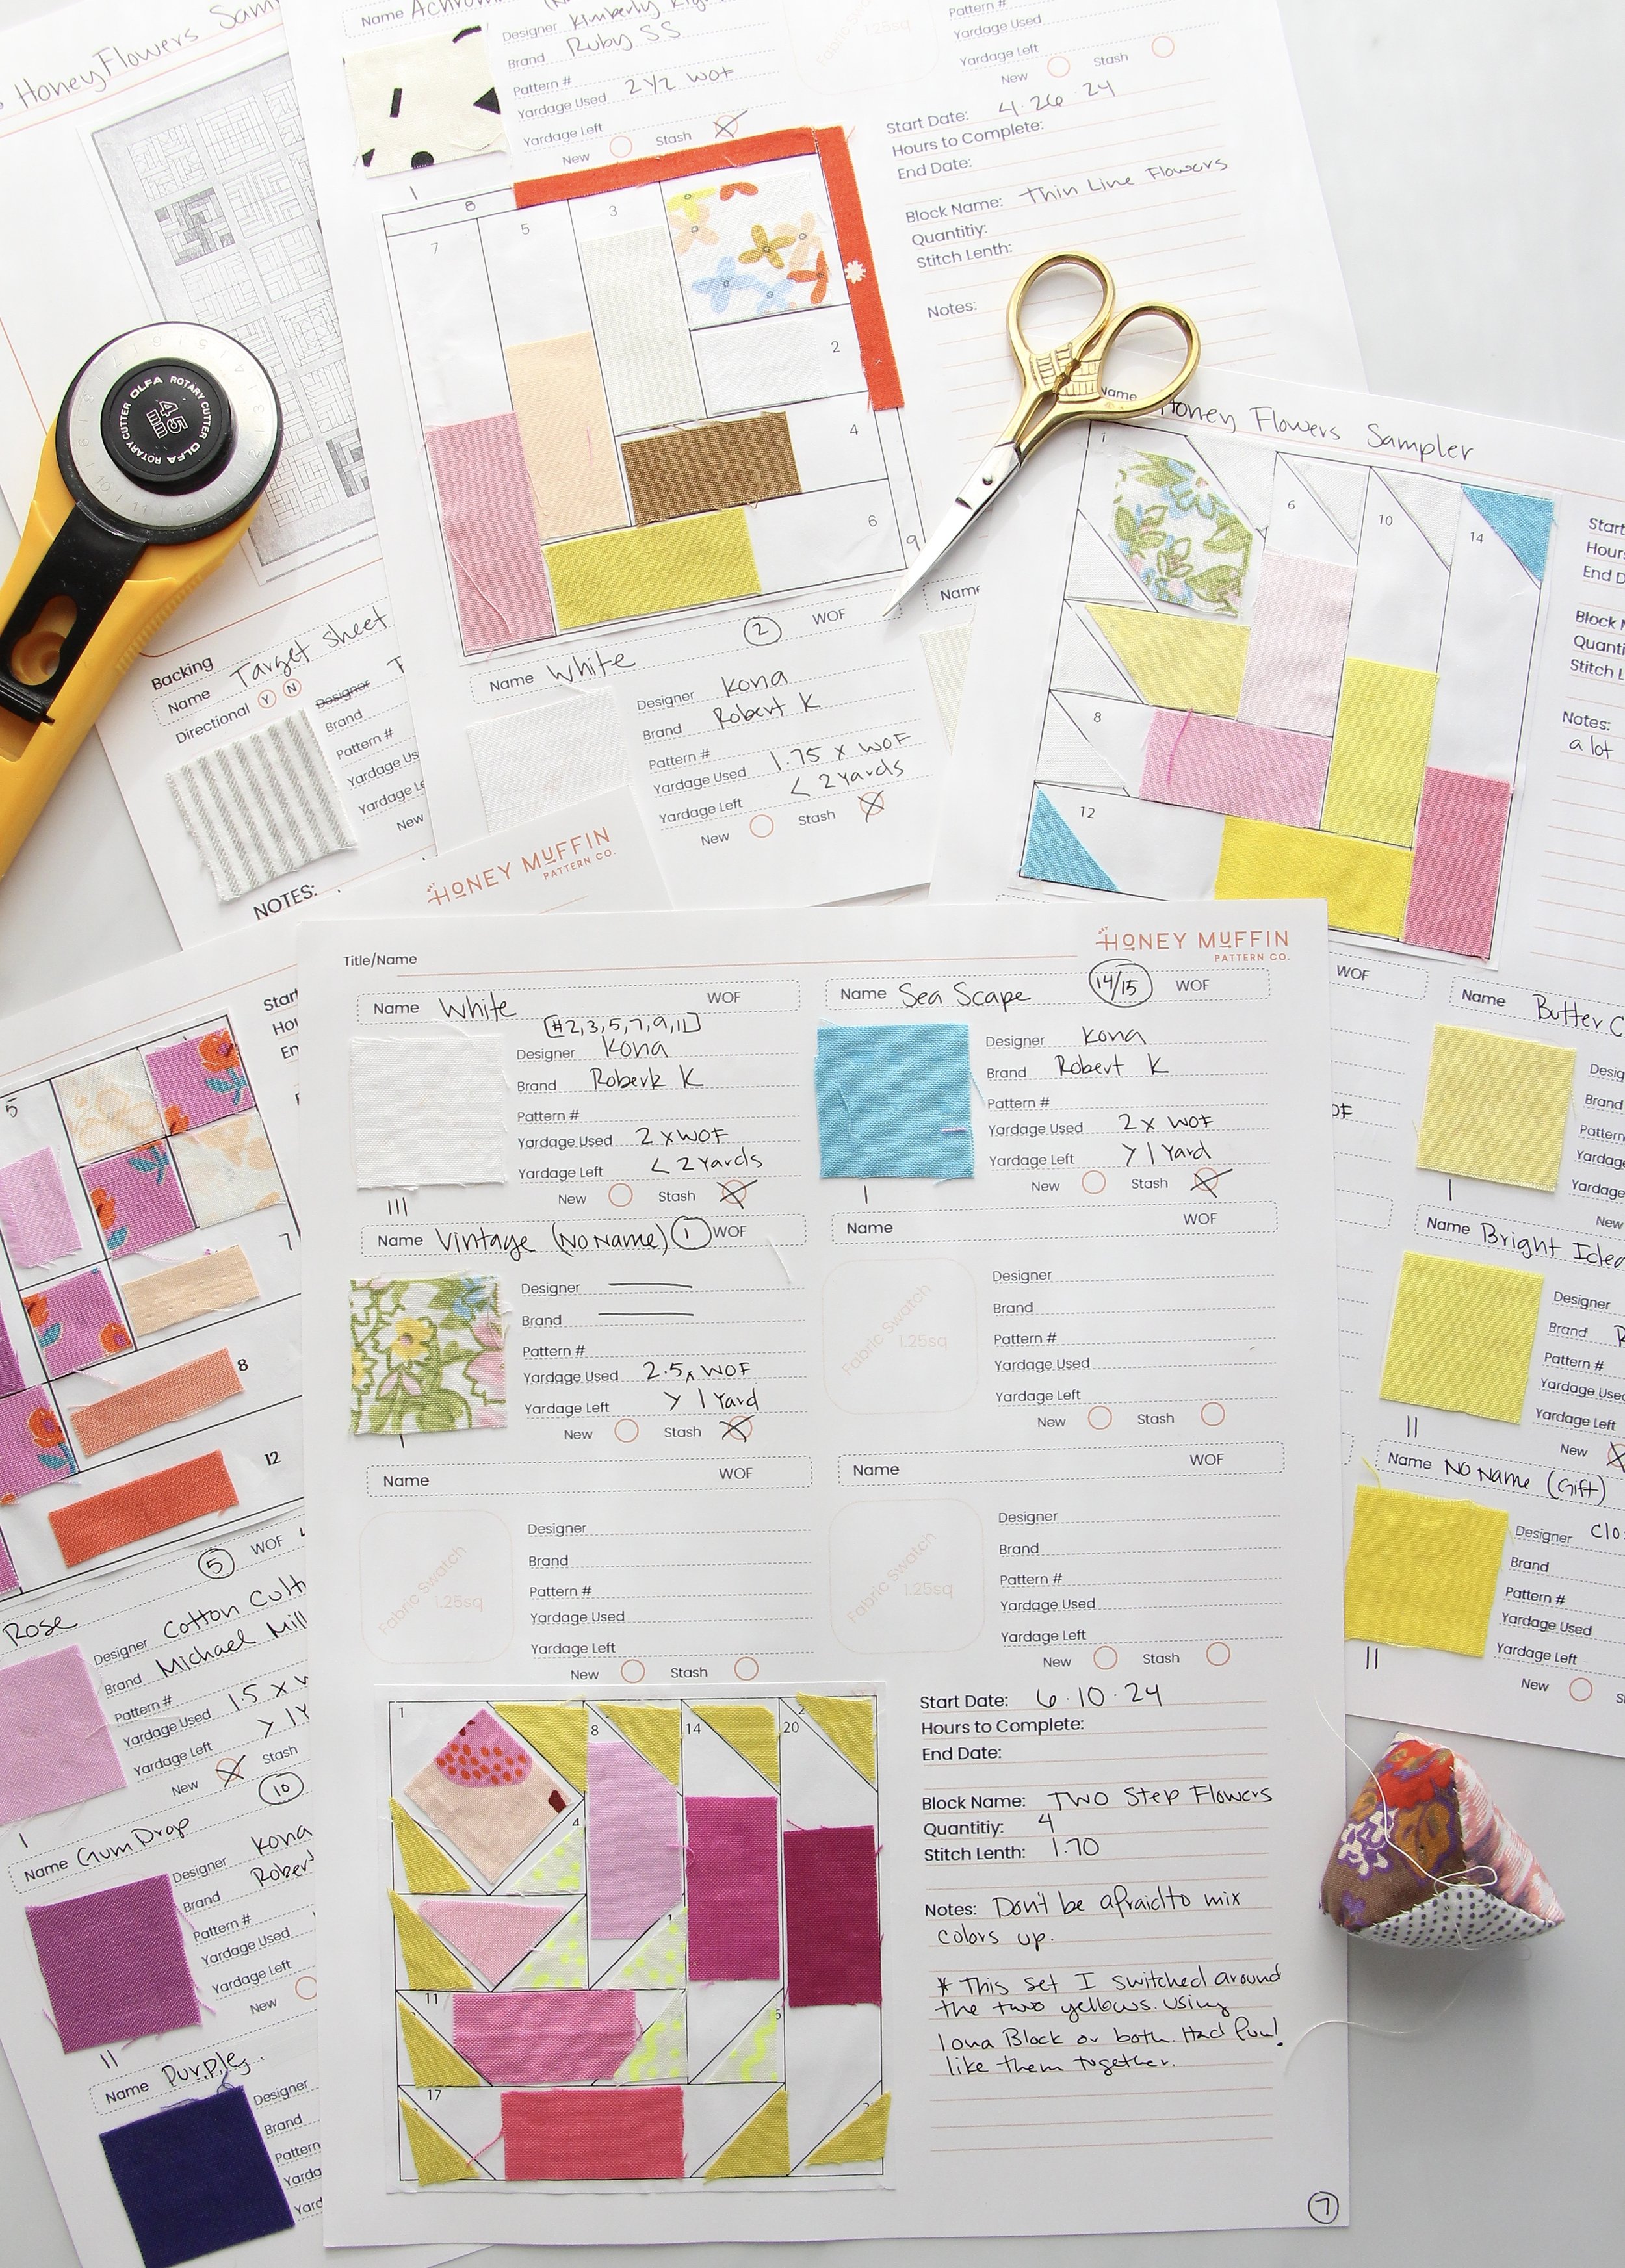 HoneyFlowers
Name
Designer Kimberly
Brand Ruby SS
Pattern #
Yardage Used 2 1/2 WOF
Yardage Left
New Stash
1
Pattern #
Yardage Used
Yardage Left
New Stash
Start Date: 4.26.24
Hours to Complete:
End Date:
Block Name: Thin Line Flowers
Quantitiy:
Stitch Lenth:
Notes:
8
7
5
3
2
4
6
9
OLFA ROTARY CUTTER OLFA ROTARY CUTTER
45
mm
Backing
Name Target Sheet
Directional Y N
Designer
Brand
Pattern #
Yardage Us
Yardage Le
New
NOTES:
2 WOF
Name White
Designer Kona
Brand Robert K
Pattern #
Yardage Used 1.75 x WOF
Yardage Left < 2 Yards
New Stash
Name
HONEY MUFFIN
PATTERN CO.
Name Honey Flowers Sampler
1
6
10
14
8
12
Start
Hours
End D
Block N
Quanti
Stitch L
Notes:
a lot
WOF
Name Butter C
Desig
Brand
Pattern
Yardage
Yardage
New
I
Name Bright Idea
Designer
Brand R
Pattern #
Yardage Used
Yardage Left
New
II
Name No Name (Gift)
Designer Clo
Brand
Pattern #
Yardage Used
Yardage Left
New
II
5
7
8
12
5 WOF
Rose
Designer Cotton
Brand Michael Mill
Pattern #
Yardage Used 1.5 x W
Yardage Left > 1 Y
New Stash
I
10
Name Gum Drop
Designer Kona
Brand Rober
Pattern #
Yardage Used
Yardage Left
New
II
Name Purple
Designer
Brand
Pattern
Yarda
Yard
Title/Name
HONEY MUFFIN
PATTERN CO.
Name White WOF
[#2,3,5,7,9,11]
Designer Kona
Brand Robert K
Pattern #
Yardage Used 2 x WOF
Yardage Left < 2 Yards
New Stash
III
Name Sea Scape 14/15 WOF
Designer Kona
Brand Robert K
Pattern #
Yardage Used 2 x WOF
Yardage Left > 1 Yard
New Stash
I
Name Vintage (No Name) 1 WOF
Designer
Brand
Pattern #
Yardage Used 2.5 x WOF
Yardage Left > 1 Yard
New Stash
I
Name WOF
Fabric Swatch
1.25sq
Designer
Brand
Pattern #
Yardage Used
Yardage Left
New Stash
Name WOF
Fabric Swatch
1.25sq
Designer
Brand
Pattern #
Yardage Used
Yardage Left
New Stash
Name WOF
Fabric Swatch
1.25sq
Designer
Brand
Pattern #
Yardage Used
Yardage Left
New Stash
1
8
14
20
4
11
17
Start Date: 6.10.24
Hours to Complete:
End Date:
Block Name: Two Step Flowers
Quantitiy: 4
Stitch Lenth: 1.70
Notes: Don't be afraid to mix
colors up.
* This set I switched around
the two yellows. Using
1 on a Block or both. Had fun!
like them together.
7